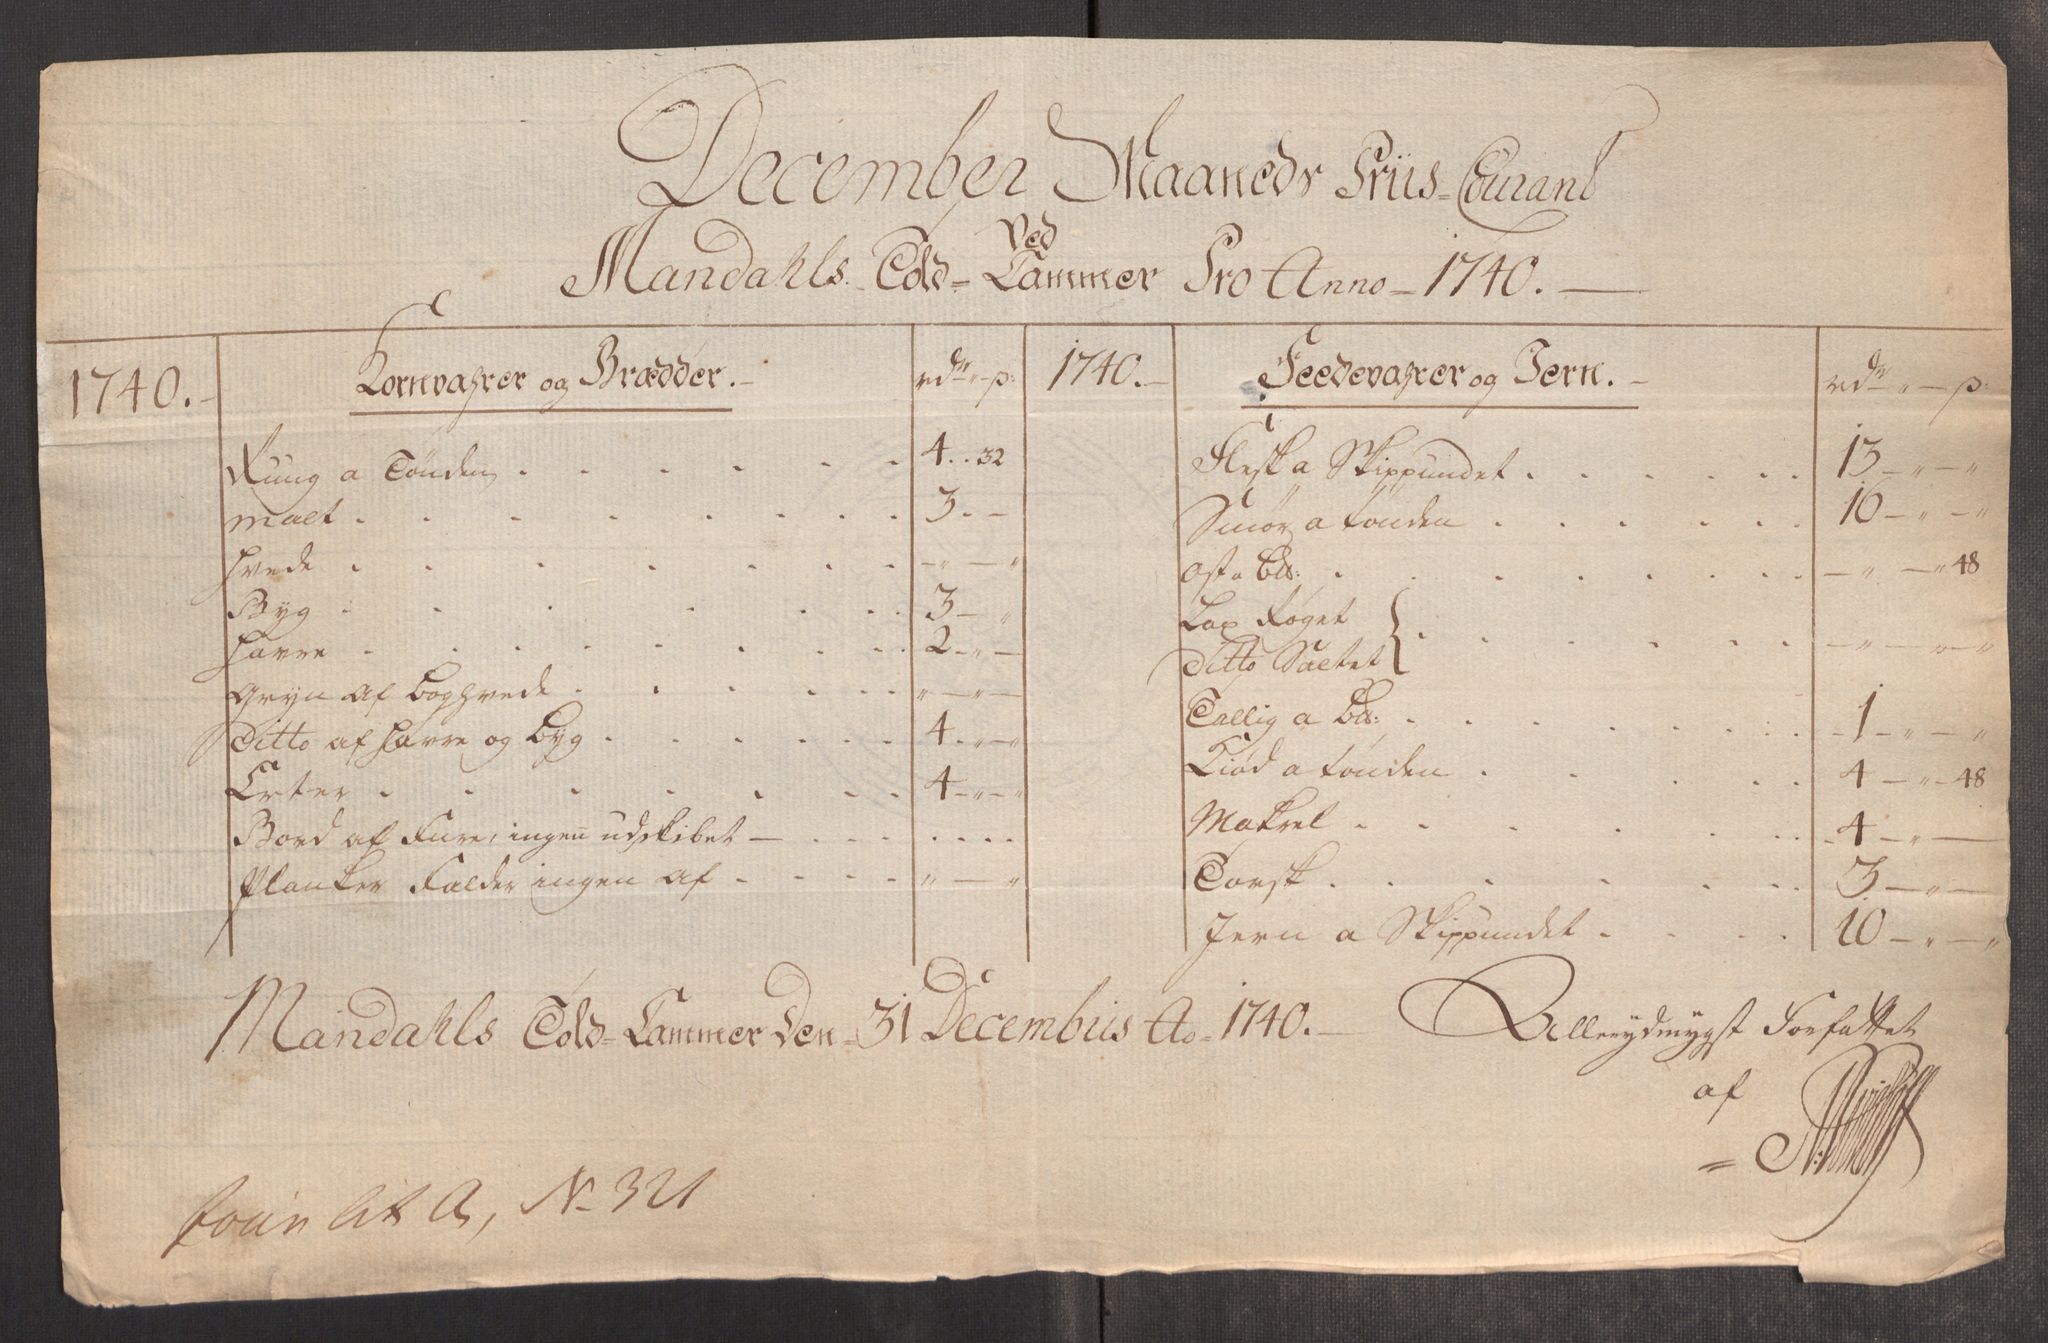 December Maaneds Priis=Courant
Ved
Mandahls Told=Cammer Pro Anno=1740.
1740.
Kornvahrer og Brædder.
rdr - " - ß:
Rug a Tønden 4 . . 32
malt 3 . -
Hvede - " - "
Byg 3 - "
Havre 2 - " -
Gryn af Boghvede " - " -
Ditto af Havre og Byg 4 - " - "
Erter 4 - " - "
Bord af Fure, ingen udskibet -
Planker Falder ingen af " - "
1740.
Feedevahrer og Jern.
rdr - " - ß:
Flesk a Skippundet 13 - " - "
Smør a tønden 16 - " - "
Ost a - " - " 48
Lax Røget
Ditto Saltet - " - " - "
Tallig a 1 - " - "
Kiød a tønden 4 - " - 48
Makrel 4 - " -
Torsk 3 - " -
Jern a Skippundet 10 - " - "
Mandahls Told=Cammer Den=31 Decembris Ao=1740.
Allerydmygst Forfattet
af
Lit A, No 321